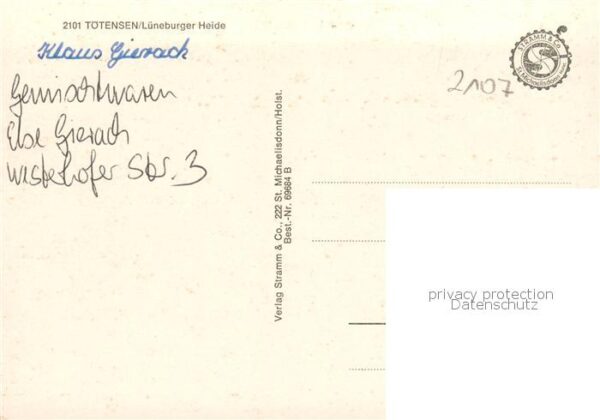 2101 TÖTENSEN/Lüneburger Heide
Klaus Gierach
Gemischtwaren
Else Gierach
Westerhofer Str. 3
Verlag Stramm & Co., 222 St. Michaelisdonn/Holst.
Best.-Nr. 69684 B
STRAMM & CO.
St. Michaelisdonn
2107
privacy protection
Datenschutz